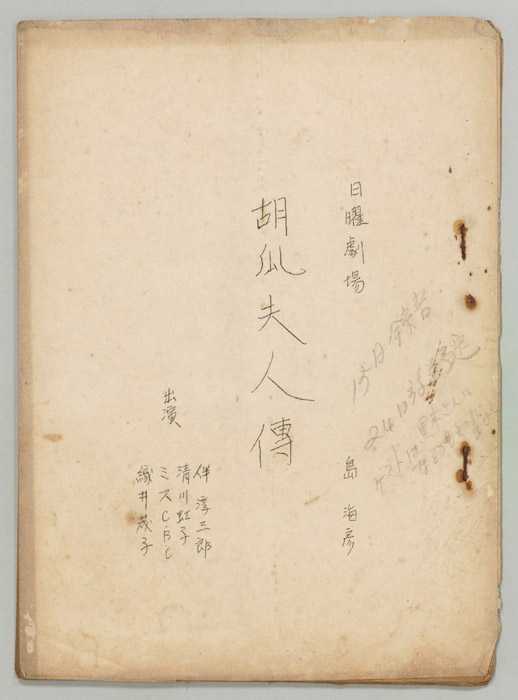 日曜劇場
胡瓜夫人傳
島海彦
出演
伴淳三郎
清川虹子
ミスC.B.C
織井茂子
15日録音
24日放送予定
ゲストは